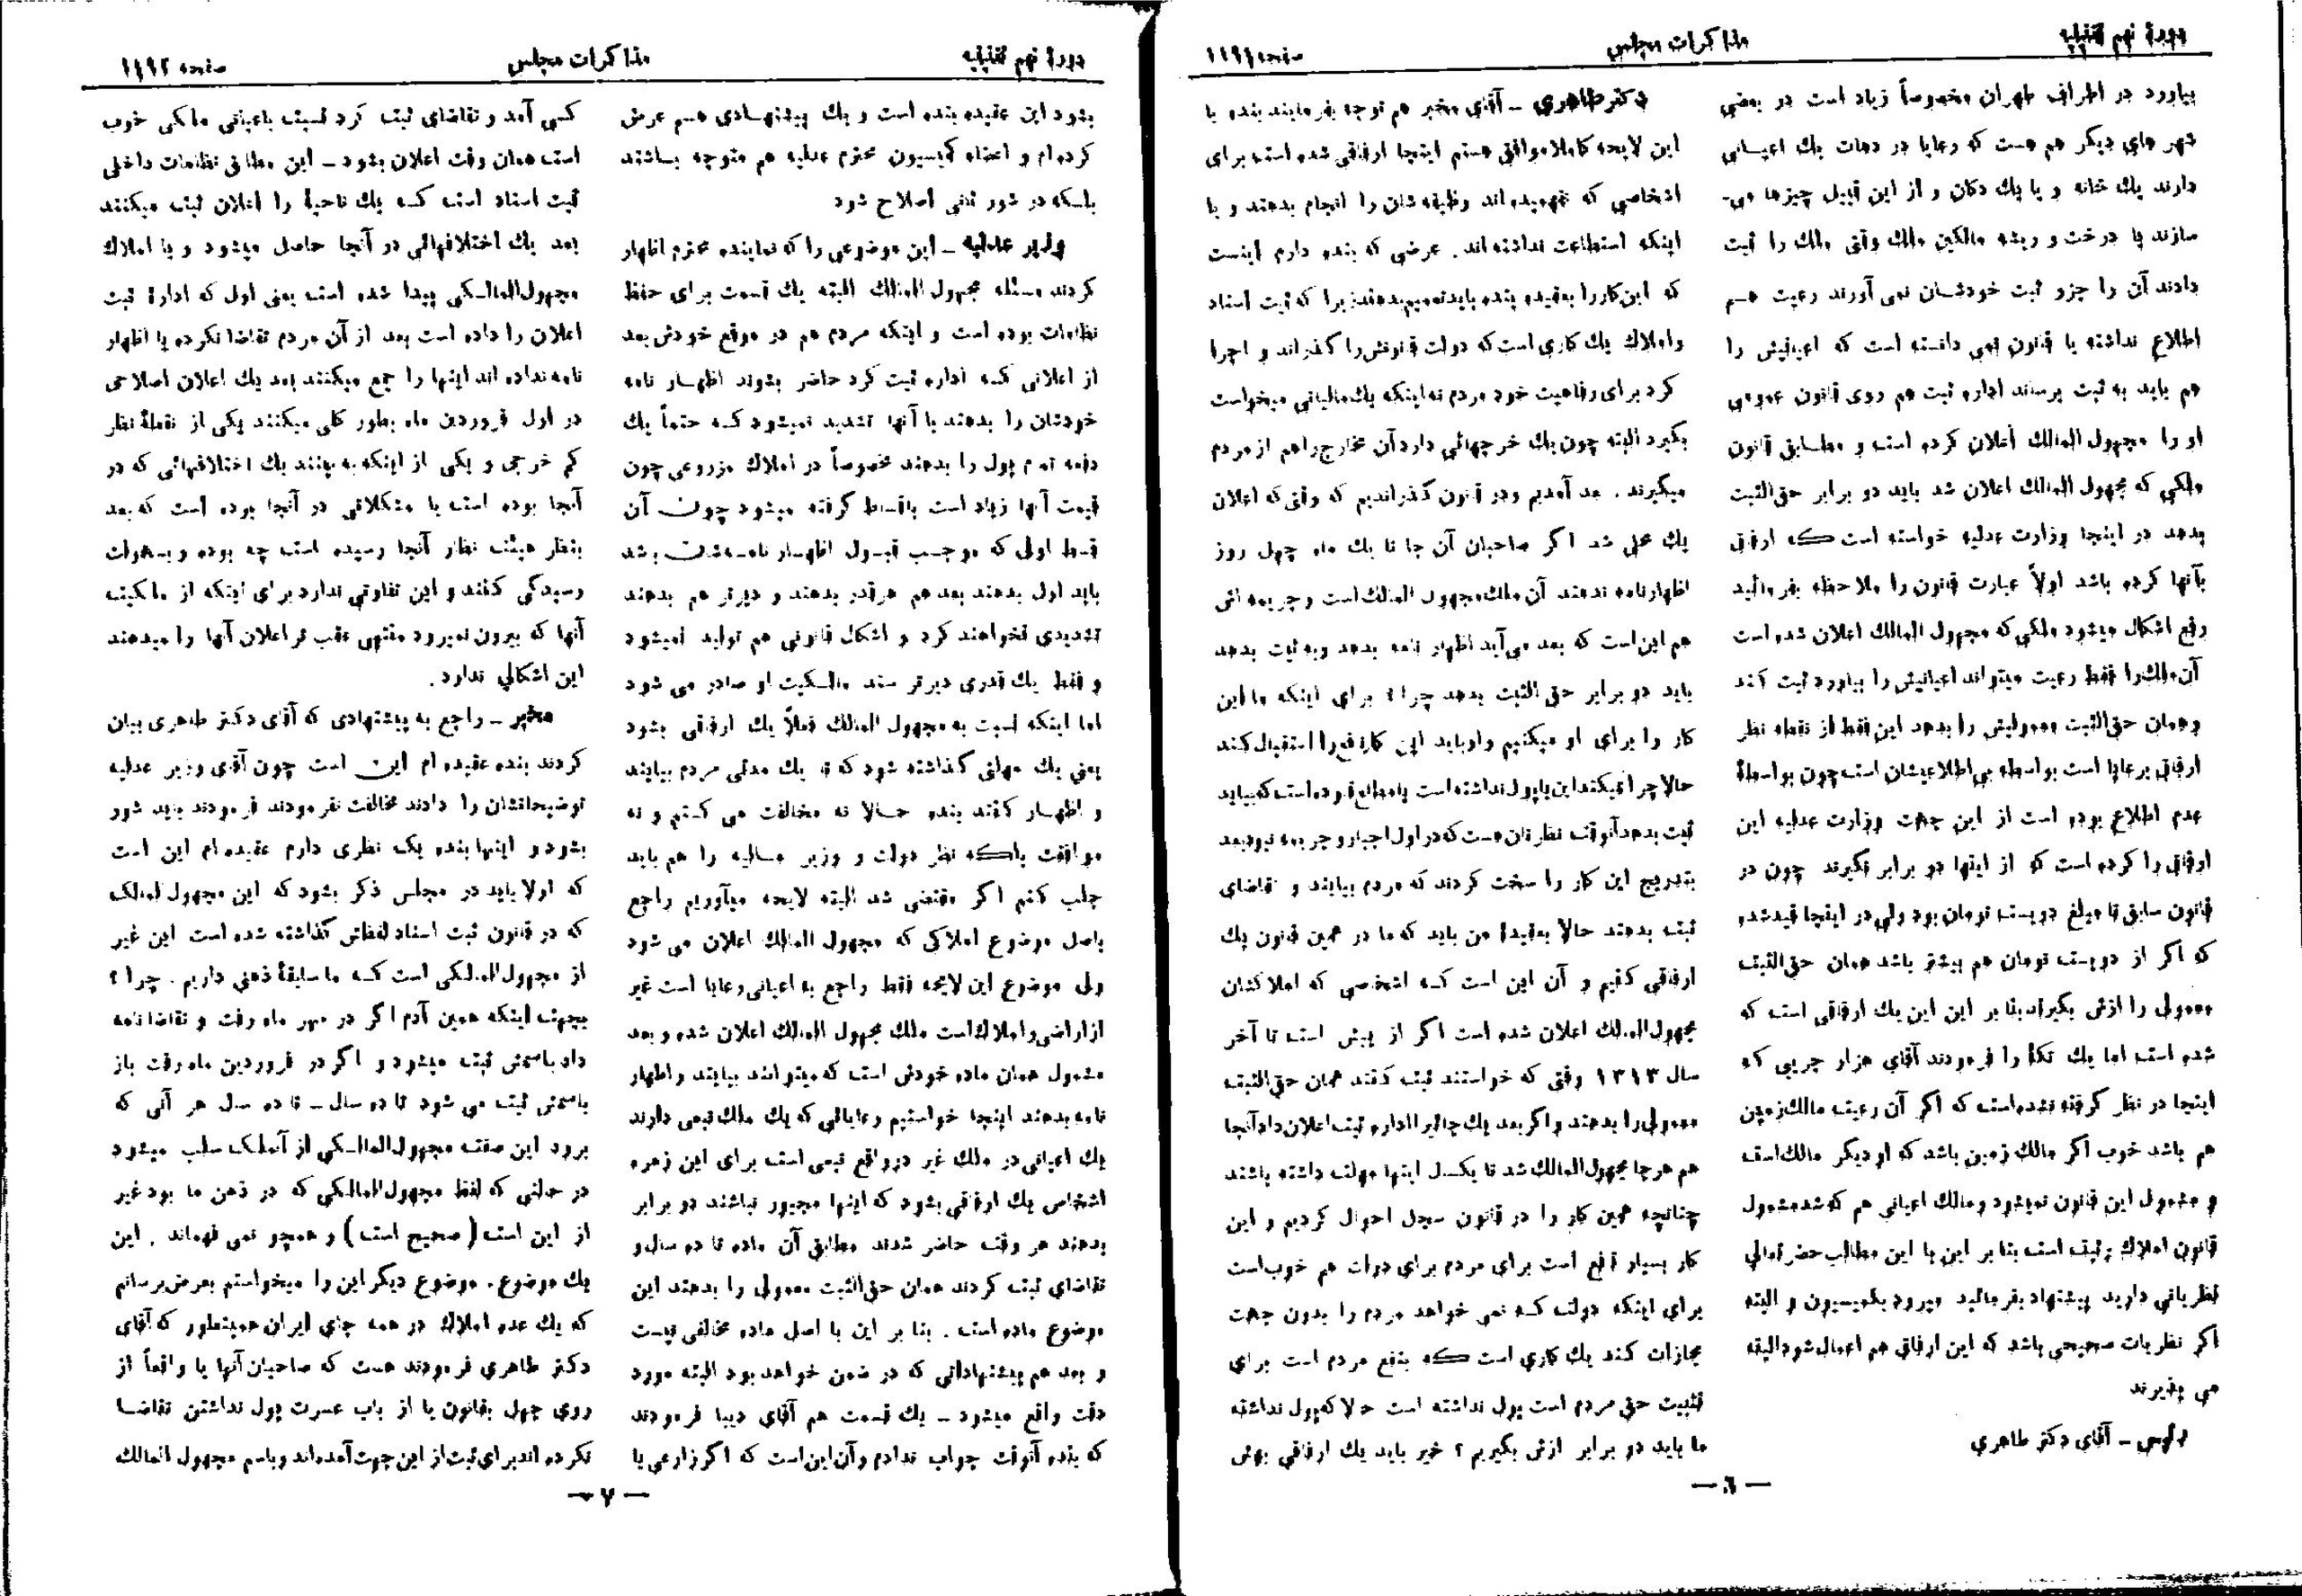 دورهٔ نهم تقنینیه
مذاکرات مجلس
صفحه ۱۱۹۱
بیاورد در اطراف طهران مخصوصاً زیاد است در بعضی
شهر های دیگر هم هست که رعایا در دهات یك اعیــانی
دارند یك خانه و یا یك دکان و از این قبیل چیزها می-
سازند یا درخت و ریشه مالکین ملك وقتی ملك را ثبت
دادند آن را جزو ثبت خودشــان نمی آورند رعیت هــم
اطلاع نداشته یا قانون نمی دانسته است که اعیانیش را
هم باید به ثبت برساند اداره ثبت هم روی قانون عمومی
او را مجهول المالك اعلان کرده است و مطــابق قانون
ملکی که مجهول المالك اعلان شد باید دو برابر حق‌الثبت
بدهد در اینجا وزارت عدلیه خواسته است که ارفاق
بآنها کرده باشد اولاً عبارت قانون را ملاحظه بفرمائید
رفع اشکال میشود ملکی که مجهول المالك اعلان شده است
آن ملك را فقط رعیت میتواند اعیانیش را بیاورد ثبت کند
وهمان حق‌الثبت معمولیش را بدهد این فقط از نقطه نظر
ارفاق برعایا است بواسطه بی‌اطلاعیشان است چون بواسطهٔ
عدم اطلاع بوده است از این جهت وزارت عدلیه این
ارفاق را کرده است که از اینها دو برابر نگیرند چون در
قانون سابق تا مبلغ دویست تومان بود ولی در اینجا قید شده
که اگر از دویست تومان هم بیشتر باشد همان حق الثبت
معمولی را ازش بگیرند بنا بر این این یك ارفاقی است که
شده است اما یك نکتهٔ را فرمودند آقای هزار جریبی که
اینجا در نظر گرفته نشده است که اگر آن رعیت مالك زمین
هم باشد خوب اگر مالك زمین باشد که او دیگر مالك است
و مشمول این قانون نمیشود ومالك اعیانی هم که شد مشمول
قانون املاك و ثبت است بنا بر این با این مطالب حضرتعالی
نظریاتی دارید پیشنهاد بفرمائید میرود بکمیسیون و البته
اگر نظریات صحیحی باشد که این ارفاق هم اعمال شود البته
می پذیرند
رئیس ـ آقای دکتر طاهری
دکتر طاهری ـ آقای مخبر هم توجه بفرمایند بنده با
این لایحه کاملا موافق هستم اینجا ارفاقی شده است برای
اشخاصی که نفهمیده اند وظیفه شان را انجام بدهند و یا
اینکه استطاعت نداشته اند. عرضی که بنده دارم اینست
که این کار را بعقیده بنده باید تعمیم بدهند زیرا که ثبت اسناد
و املاك یك کاری است که دولت قانونش را گذراند و اجرا
کرد برای رفاهیت خود مردم نه اینکه یك مالیاتی میخواست
بگیرد البته چون یك خرجهائی دارد آن مخارج را هم از مردم
میگیرند. بعد آمدیم و در قانون گذراندیم که وقتی که اعلان
یك محلی شد اگر صاحبان آن جا تا یك ماه چهل روز
اظهارنامه ندهند آن ملك مجهول المالك است و جریمه اش
هم این است که بعد می آید اظهار نامه بدهد و به ثبت بدهد
باید دو برابر حق الثبت بدهد چرا ؟ برای اینکه ما این
کار را برای او میکنیم و او باید این کار نافع را استقبال کند
حالا چرا نمیکند این یا پول نداشته است یا مطلع نبوده است که بیاید
ثبت بدهد آنوقت نظر تان هست که در اول اجبار و جریمه نبود بعد
بتدریج این کار را سخت کردند که مردم بیایند و تقاضای
ثبت بدهند حالا بعقیدهٔ من باید که ما در همین قانون یك
ارفاقی کنیم و آن این است کــه اشخاصی که املاکشان
مجهول المالك اعلان شده است اگر از پیش است تا آخر
سال ۱۳۱۳ وقتی که خواستند ثبت کنند همان حق الثبت
معمولی را بدهند و اگر بعد یك جائی را اداره ثبت اعلان داد آنجا
هم هر جا مجهول المالك شد تا یکسال اینها مهلت داشته باشند
چنانچه همین کار را در قانون سجل احوال کردیم و این
کار بسیار نافع است برای مردم برای دولت هم خوب است
برای اینکه دولت کــه نمی خواهد مردم را بدون جهت
مجازات کند یك کاری است که بنفع مردم است برای
تثبیت حق مردم است پول نداشته است حالا که پول نداشته
ما باید دو برابر ازش بگیریم ؟ خیر باید یك ارفاقی بهش
ـ ٦ ـ
دورهٔ نهم تقنینیه
مذاکرات مجلس
صفحه ۱۱۹۲
بشود این عقیده بنده است و یك پیشنهــادی هــم عرض
کرده ام و اعضاء کمیسیون محترم عدلیه هم متوجه بــاشند
بلکه در شور ثانی اصلاح شود
وزیر عدلیه ـ این موضوعی را که نماینده محترم اظهار
کردند مسئله مجهول المالك البته یك قسمت برای حفظ
نظامات بوده است و اینکه مردم هم در موقع خودش بعد
از اعلانی کــه اداره ثبت کرد حاضر بشوند اظهــار نامه
خودشان را بدهند با آنها تشدید نمیشود کــه حتماً یك
دفعه تمام پول را بدهند مخصوصاً در املاك مزروعی چون
قیمت آنها زیاد است باقساط گرفته میشود چون آن
قسط اولی که موجــب قبــول اظهــار نامــه شان باشد
باید اول بدهند بعد هم هرقدر بدهند و دیرتر هم بدهند
تشدیدی نخواهند کرد و اشکال قانونی هم تولید نمیشود
و فقط یك قدری دیرتر سند مالــکیت او صادر می شود
اما اینکه نسبت به مجهول المالك فعلاً یك ارفاقی بشود
یعنی یك مهلتی گذاشته شود که تا یك مدتی مردم بیایند
و اظهــار کنند بنده حــالا نه مخالفت می کــنم و نه
موافقت بلکه نظر دولت و وزیر مــالیه را هم باید
جلب کنم اگر مقتضی شد البته لایحه میآوریم راجع
باصل موضوع املاکی که مجهول المالك اعلان می شود
ولی موضوع این لایحه فقط راجع به اعیانی رعایا است غیر
از اراضی و املاك است ملك مجهول المالك اعلان شده و بعد
مشمول همان ماده خودش است که میتوانند بیایند و اظهار
نامه بدهند اینجا خواستیم رعایائی که یك ملك تبعی دارند
یك اعیانی در ملك غیر در واقع تبعی است برای این زمره
اشخاص یك ارفاقی بشود که اینها مجبور نباشند دو برابر
بدهند هر وقت حاضر شدند مطابق آن ماده تا ده سال و
تقاضای ثبت کردند همان حق‌الثبت معمولی را بدهند این
موضوع ماده است. بنا بر این با اصل ماده مخالفتی نیست
و بعد هم پیشنهاداتی که در ضمن خواهد بود البته مورد
دقت واقع میشود ـ یك قسمت هم آقای دیبا فرمودند
که بنده آنوقت جواب ندادم و آن این است که اگر زارعی یا
کسی آمد و تقاضای ثبت کرد نسبت باعیانی ملکی خوب
است همان وقت اعلان بشود ـ این مطابق نظامات داخلی
ثبت اسناد است کــه یك ناحیهٔ را اعلان ثبت میکنند
بعد یك اختلافهائی در آنجا حاصل میشود و یا املاك
مجهول المالــکی پیدا شده است یعنی اول که ادارهٔ ثبت
اعلان را داده است بعد از آن مردم تقاضا نکرده یا اظهار
نامه نداده اند اینها را جمع میکنند بعد یك اعلان اصلاحی
در اول فروردین ماه بطور کلی میکنند یکی از نقطهٔ نظر
کم خرجی و یکی از اینکه به بینند یك اختلافهائی که در
آنجا بوده است یا مشکلاتی در آنجا بوده است که بعد
بنظر هیئت نظار آنجا رسیده است چه بوده و بسهولت
رسیدگی کنند و این تفاوتی ندارد برای اینکه از مالکیت
آنها که بیرون نمیرود منتهی عقب تر اعلان آنها را میدهند
این اشکالی ندارد.
مخبر ـ راجع به پیشنهادی که آقای دکتر طاهری بیان
کردند بنده عقیده ام این است چون آقای وزیر عدلیه
توضیحاتشان را دادند مخالفت نفرمودند فرمودند باید شور
بشود و اینها بنده یک نظری دارم عقیده ام این است
که اولا باید در مجلس ذکر بشود که این مجهول المالک
که در قانون ثبت اسناد لفظاش گذاشته شده است این غیر
از مجهول المالکی است کــه ما سابقهٔ ذهنی داریم. چرا ؟
بجهت اینکه همین آدم اگر در مهر ماه رفت و تقاضا نامه
داد باسمش ثبت میشود و اگر در فروردین ماه رفت باز
باسمش ثبت می شود تا ده سال ـ تا ده سال هر آنی که
برود این صفت مجهول المالــکی از آنملک سلب میشود
در حالتی که لفظ مجهول المالکی که در ذهن ما بود غیر
از این است (صحیح است) و همچو نمی فهماند. این
یك موضوع. موضوع دیگر این را میخواستم بعرض برسانم
که یك عده املاك در همه جای ایران همینطور که آقای
دکتر طاهری فرمودند هست که صاحبان آنها یا واقعاً از
روی جهل بقانون یا از باب عسرت پول نداشتن تقاضــا
نکرده اند برای ثبت از این جهت آمده اند و باسم مجهول المالك
ـ ۷ ـ